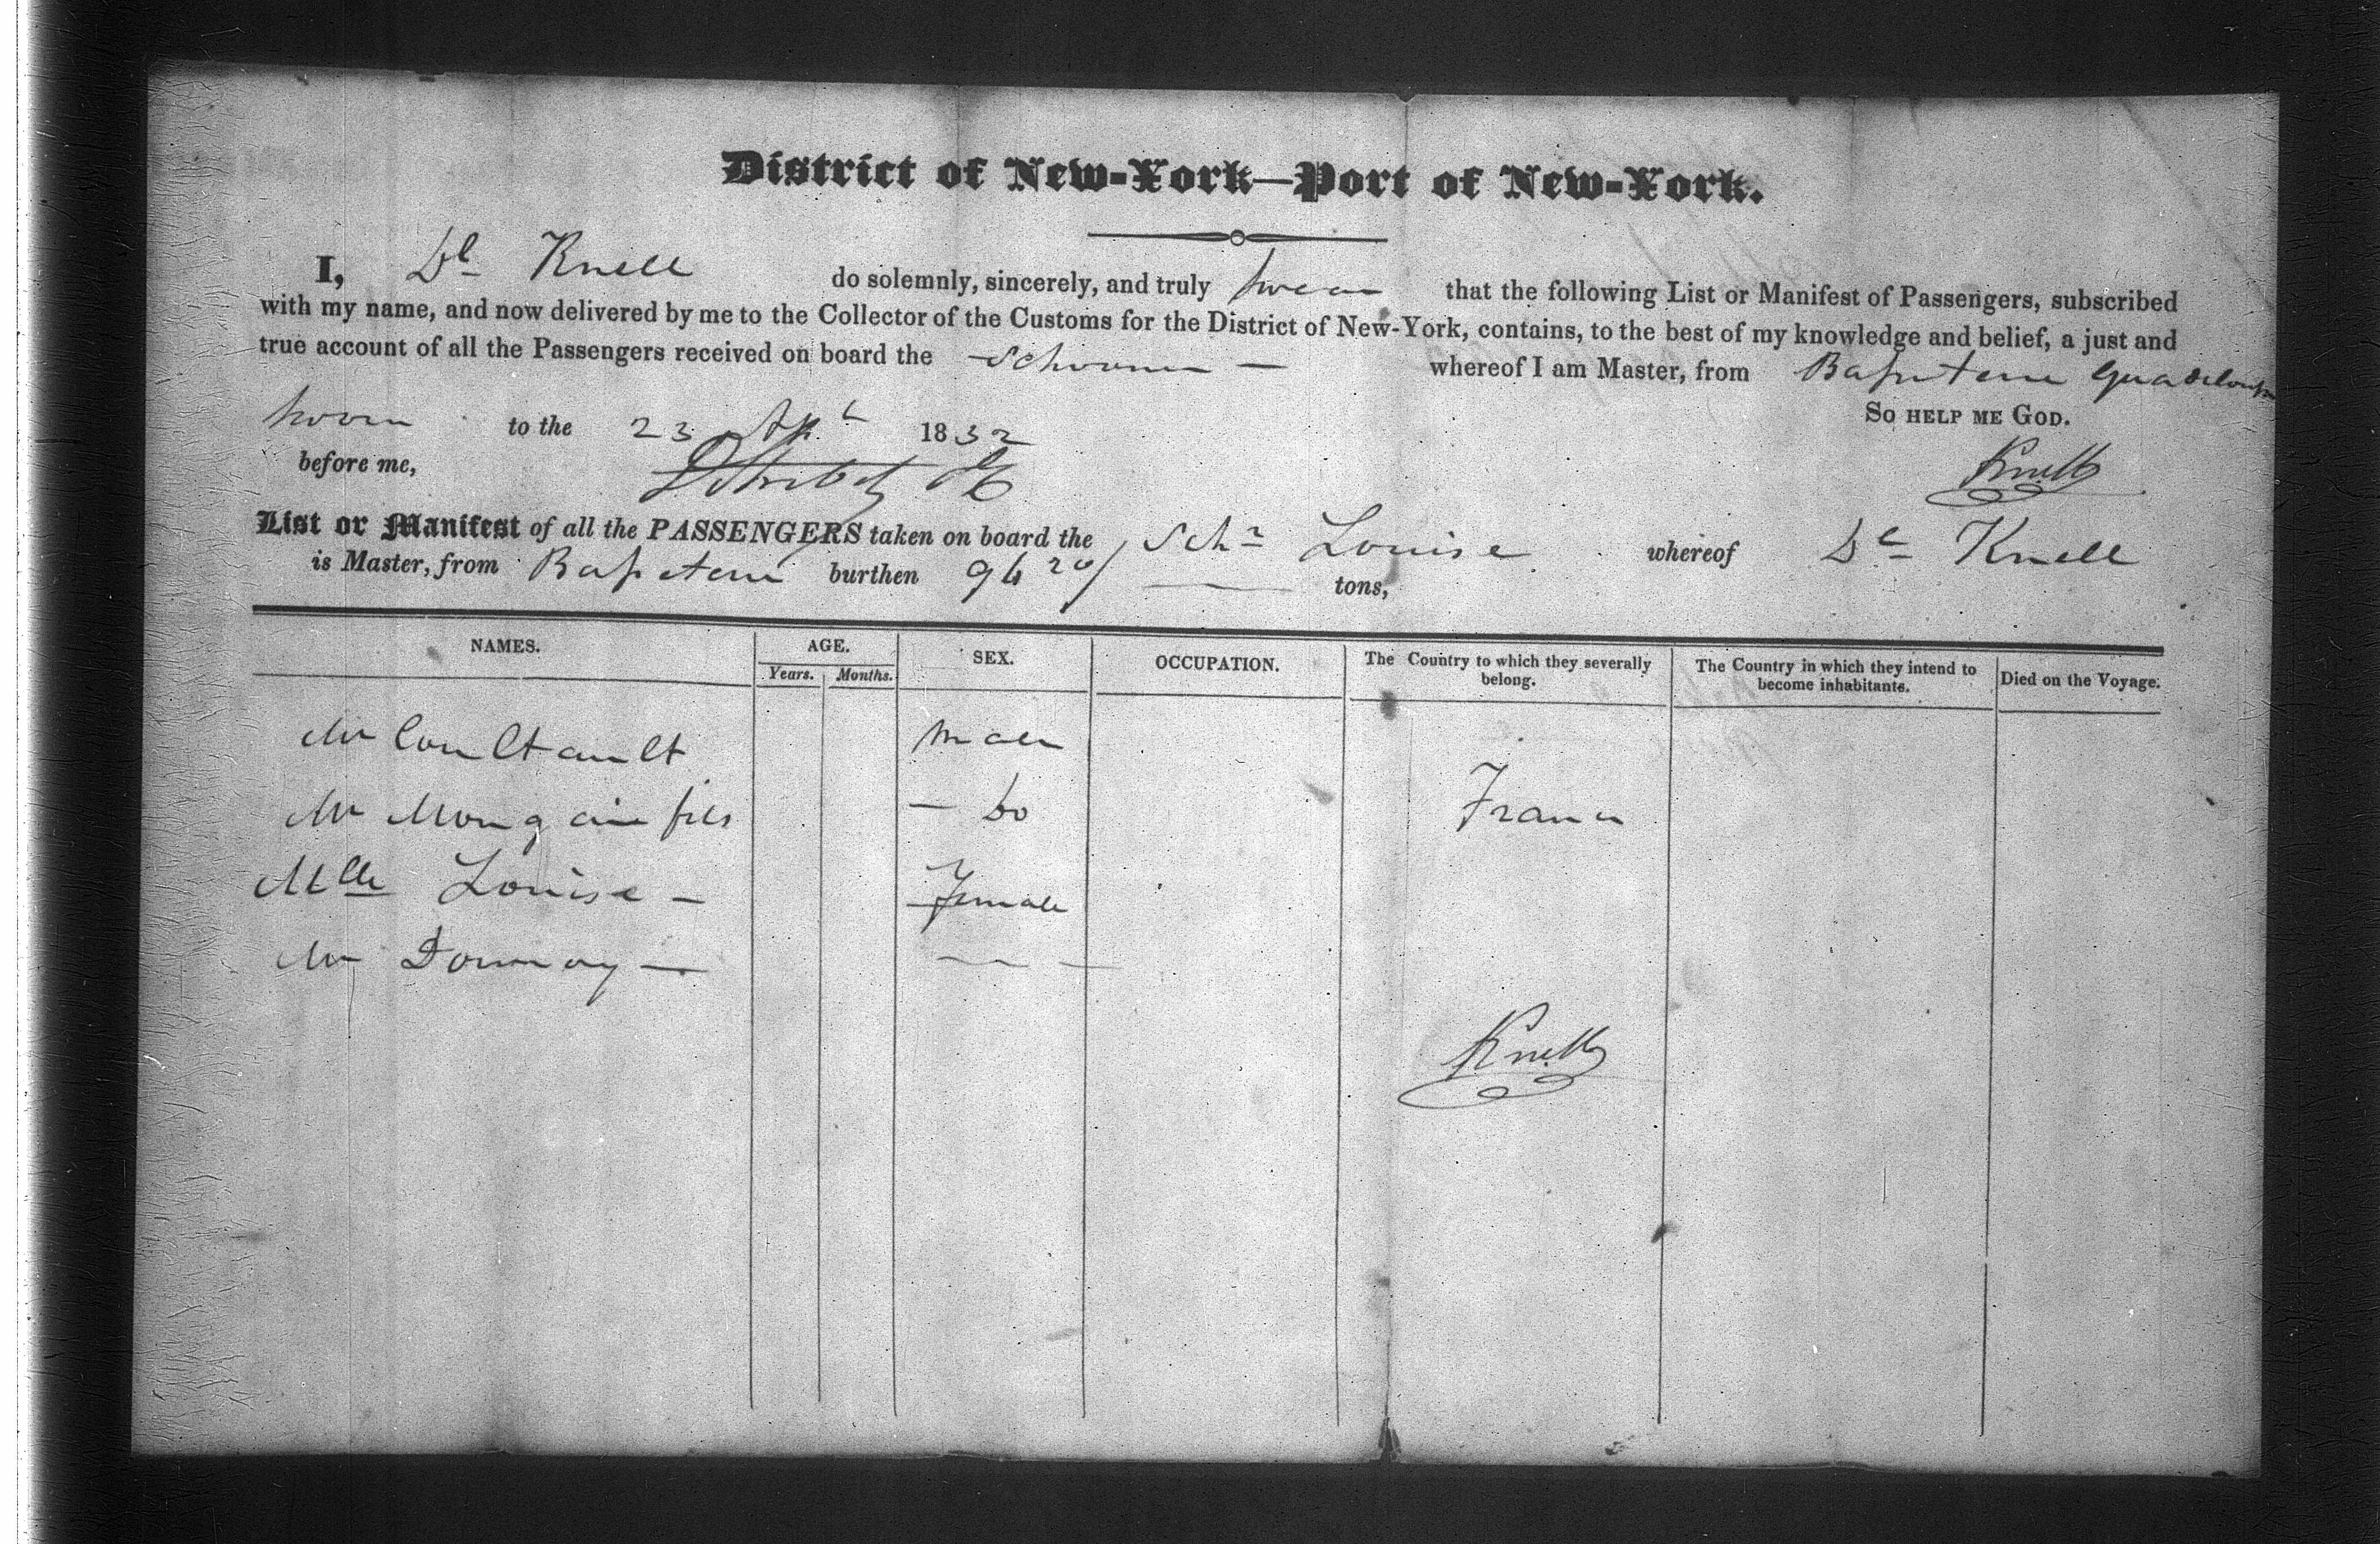 District of New-York—Port of New-York.
I, Dl Knell do solemnly, sincerely, and truly swear that the following List or Manifest of Passengers, subscribed
with my name, and now delivered by me to the Collector of the Customs for the District of New-York, contains, to the best of my knowledge and belief, a just and
true account of all the Passengers received on board the Schooner — whereof I am Master, from Guadeloupe
Sworn to the 23 Apl 1832 So help me God.
before me, Knell
List or Manifest of all the PASSENGERS taken on board the Schr Louise whereof Dl Knell
is Master, from burthen tons,
NAMES. AGE. SEX. OCCUPATION. The Country to which they severally belong. The Country in which they intend to become inhabitants. Died on the Voyage.
Years. Months.
Mr male
Mr fils — Do France
Mlle Louise — Female
Mr Dournoy —
Knell